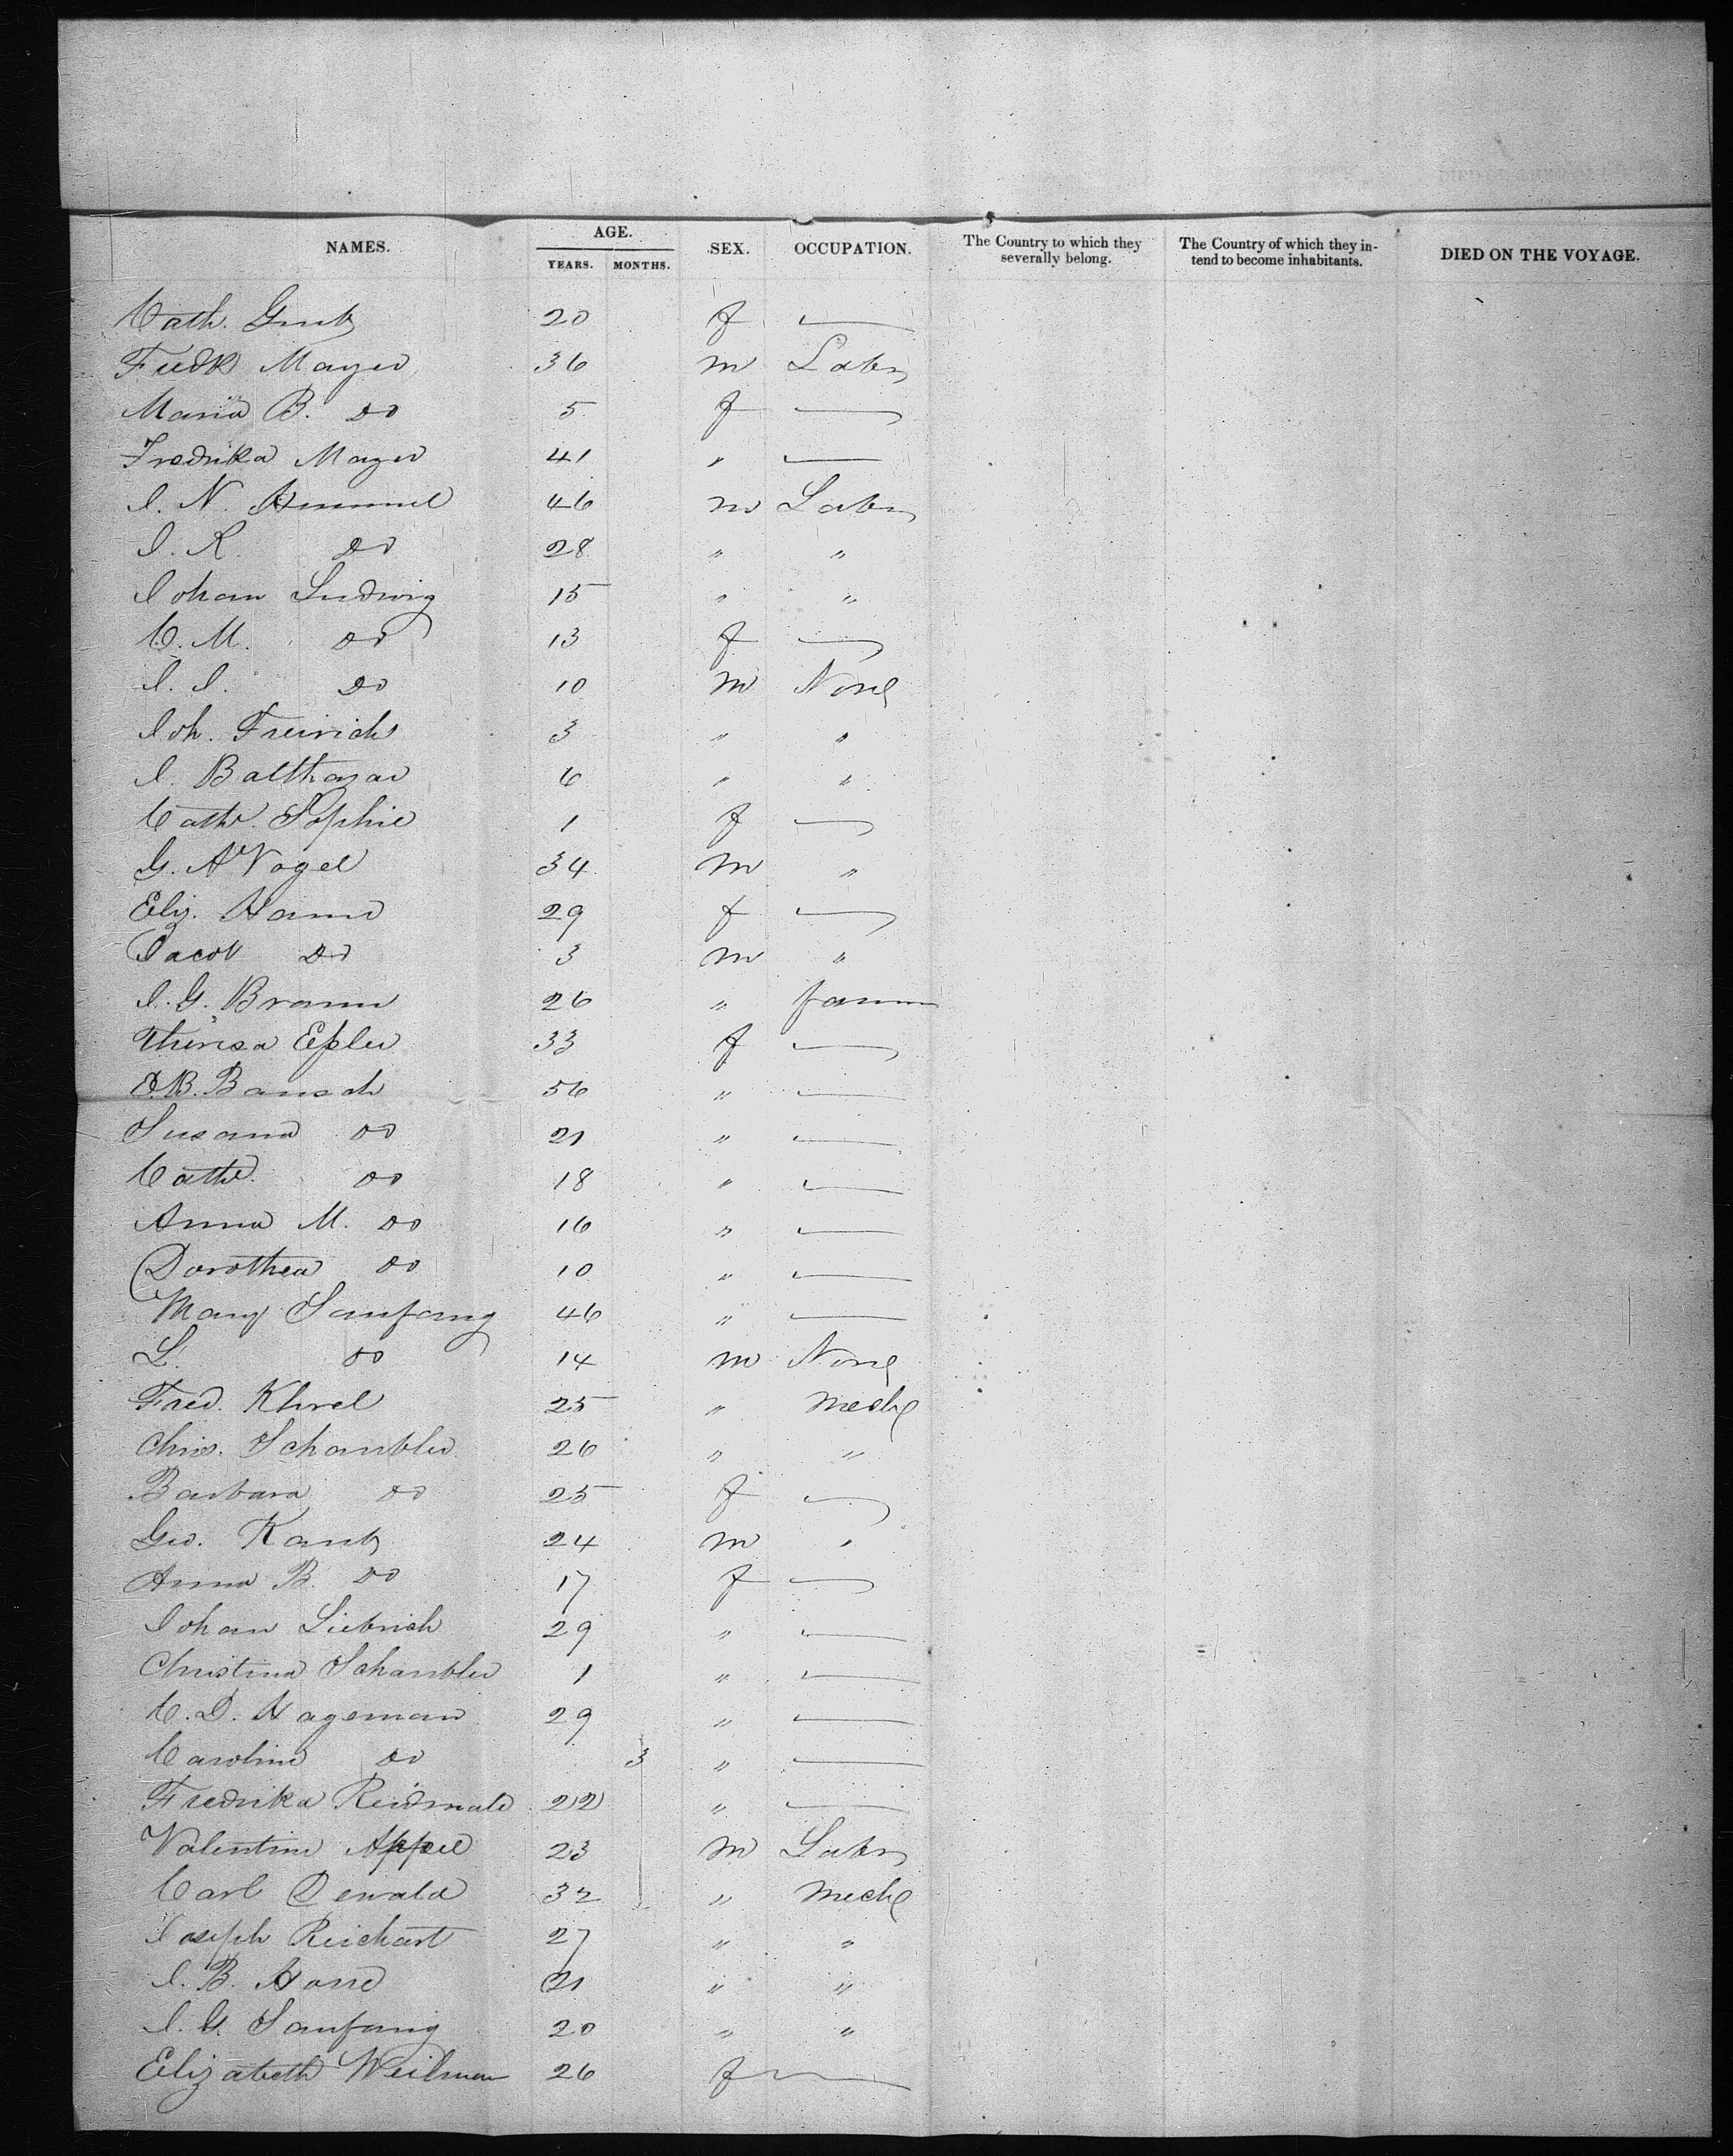 NAMES. AGE. YEARS. MONTHS. SEX. OCCUPATION. The Country to which they severally belong. The Country of which they intend to become inhabitants. DIED ON THE VOYAGE.
Cath. 20 f —
Fredk Mayer 36 m Labr
Maria B. Do 5 f —
Fredrika Mayer 41 " —
I. N. Hummel 46 m Labr
I. R. Do 28 " "
Johan Ludwig 15 " "
C. M. Do 13 f —
I. I. Do 10 m None
Joh. 3 " "
I. Balthazar 6 " "
Cath. Sophie 1 f —
G. A Vogel 34 m "
Eliz. 29 f —
Jacob Do 3 m "
I. G. Braun 26 " farmer
Theresa Epler 33 f —
Bausch 56 " —
Susana Do 21 " —
Cath. Do 18 " —
Anna M. Do 16 " —
Dorothea Do 10 " —
Mary Saufang 46 " —
L. Do 14 m None
Fred. 25 " mech
Chris. Schaubler 26 " "
Barbara Do 25 f —
Geo. Kautz 24 m "
Anna B. Do 17 f —
Johan Liebrich 29 " —
Christina Schaubler 1 " —
C. D. Hageman 29 " —
Caroline Do 3 " —
Fredrika 22 " —
Valentine Appel 23 m Labr
Carl Dewald 32 " mech
Joseph Reichart 27 " "
I. B. 21 " "
I. G. Saufang 20 " "
Elizabeth Weilman 26 f —